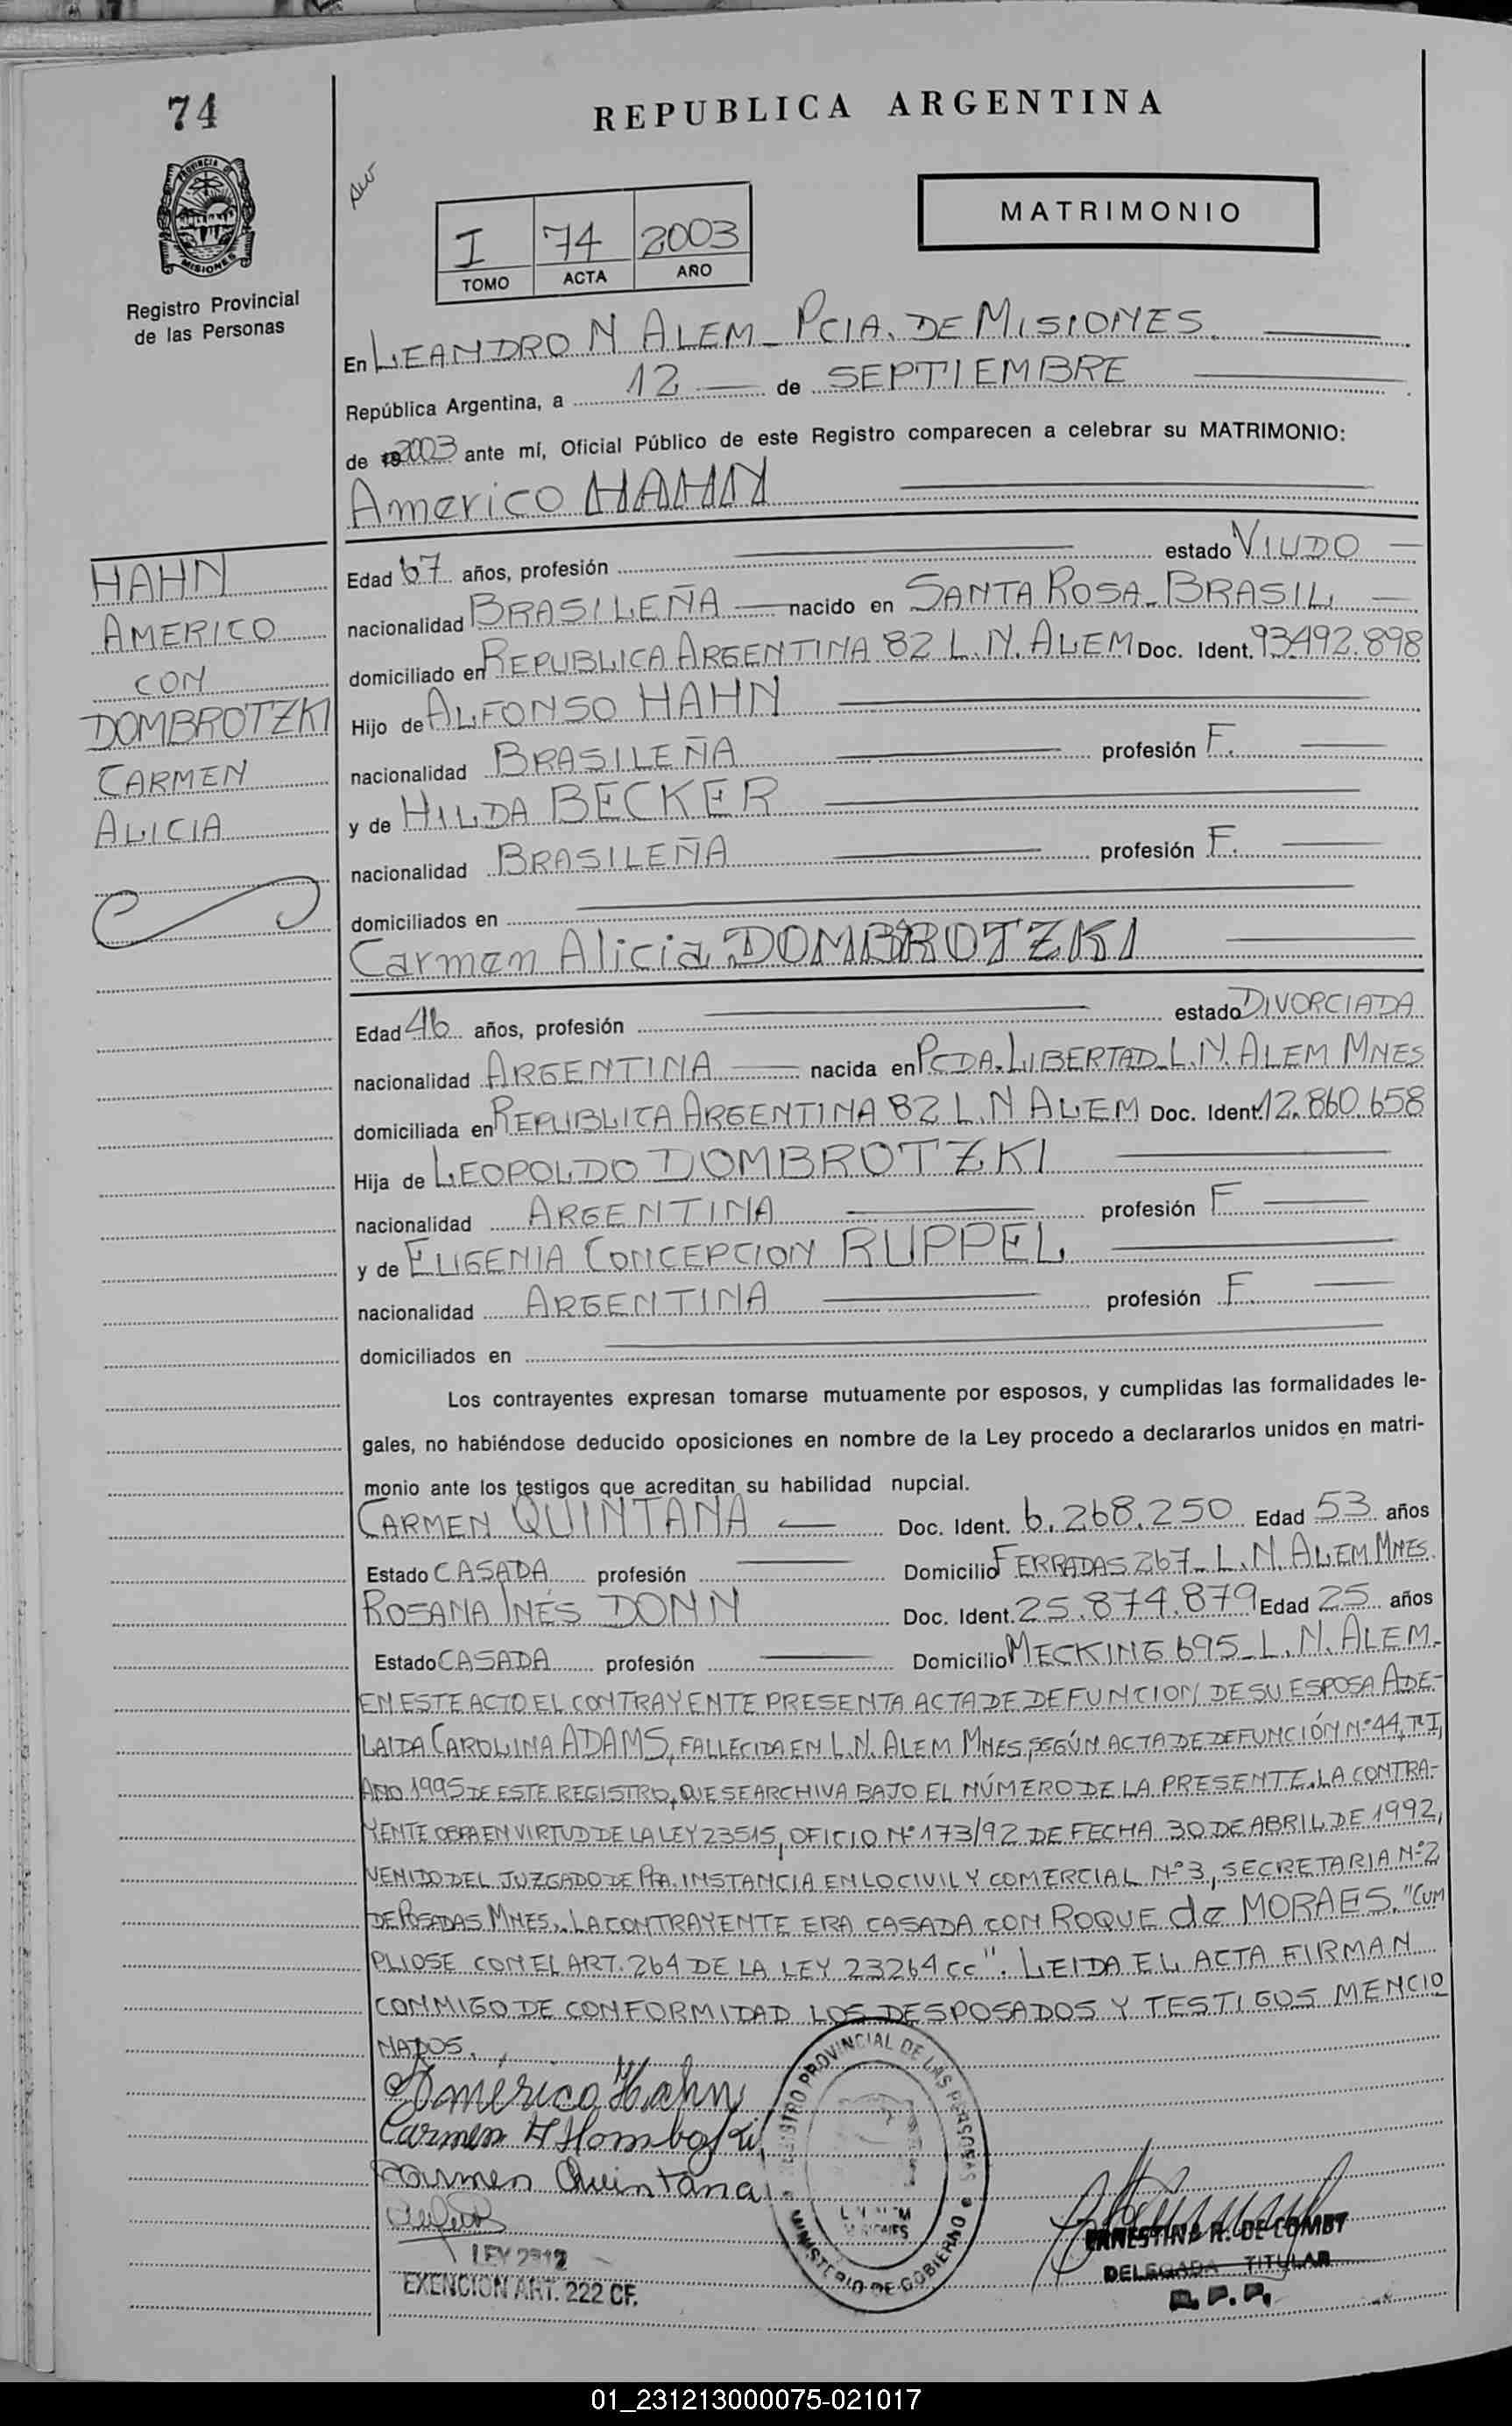 74
REPUBLICA ARGENTINA
PROVINCIA DE
MISIONES
Registro Provincial
de las Personas
I 74 2003
TOMO ACTA AÑO
MATRIMONIO
En LEANDRO N ALEM_ PCIA. DE MISIONES.
República Argentina, a 12 de SEPTIEMBRE
de 2003 ante mí, Oficial Público de este Registro comparecen a celebrar su MATRIMONIO:
Americo HAHN
HAHN
AMERICO
CON
DOMBROTZKI
CARMEN
ALICIA
Edad 67 años, profesión estado VIUDO
nacionalidad BRASILEÑA nacido en SANTA ROSA_BRASIL
domiciliado en REPUBLICA ARGENTINA 82 L.N. ALEM Doc. Ident. 93.492.898
Hijo de ALFONSO HAHN
nacionalidad BRASILEÑA profesión F.
y de HILDA BECKER
nacionalidad BRASILEÑA profesión F.
domiciliados en
Carmen Alicia DOMBROTZKI
Edad 46 años, profesión estado DIVORCIADA
nacionalidad ARGENTINA nacida en PCDA. LIBERTAD_L.N. ALEM MNES
domiciliada en REPUBLICA ARGENTINA 82 L.N ALEM Doc. Ident. 12.860.658
Hija de LEOPOLDO DOMBROTZKI
nacionalidad ARGENTINA profesión F
y de EUGENIA CONCEPCION RUPPEL
nacionalidad ARGENTINA profesión F.
domiciliados en
Los contrayentes expresan tomarse mutuamente por esposos, y cumplidas las formalidades le-
gales, no habiéndose deducido oposiciones en nombre de la Ley procedo a declararlos unidos en matri-
monio ante los testigos que acreditan su habilidad nupcial.
CARMEN QUINTANA Doc. Ident. 6.268.250 Edad 53 años
Estado CASADA profesión Domicilio FERRADAS 267_L.N. ALEM MNES.
ROSANA INÉS DONN Doc. Ident. 25.874.879 Edad 25 años
Estado CASADA profesión Domicilio MECKING 695_L.N. ALEM.
EN ESTE ACTO EL CONTRAYENTE PRESENTA ACTA DE DEFUNCION DE SU ESPOSA ADE-
LAIDA CAROLINA ADAMS, FALLECIDA EN L.N. ALEM MNES, SEGÚN ACTA DE DEFUNCIÓN Nº 44, Tº I,
AÑO 1995 DE ESTE REGISTRO, QUE SE ARCHIVA BAJO EL NÚMERO DE LA PRESENTE. LA CONTRA-
YENTE OBRA EN VIRTUD DE LA LEY 23515, OFICIO Nº 173/92 DE FECHA 30 DE ABRIL DE 1992,
VENIDO DEL JUZGADO DE PRA. INSTANCIA EN LO CIVIL Y COMERCIAL Nº 3, SECRETARIA Nº 2
DE POSADAS MNES. LA CONTRAYENTE ERA CASADA CON ROQUE de MORAES. "CUM
PLIOSE CON EL ART. 264 DE LA LEY 23264 cc". LEIDA EL ACTA FIRMAN
CONMIGO DE CONFORMIDAD LOS DESPOSADOS Y TESTIGOS MENCIO
NADOS.
Américo Hahn
Carmen A
Carmen Quintana
REGISTRO PROVINCIAL DE LAS PERSONAS
MINISTERIO DE GOBIERNO
MISIONES
ERNESTINA R. DE COMBY
DELEGADA TITULAR
R. P. P.
LEY
EXENCION ART. 222 CF.
01_231213000075-021017